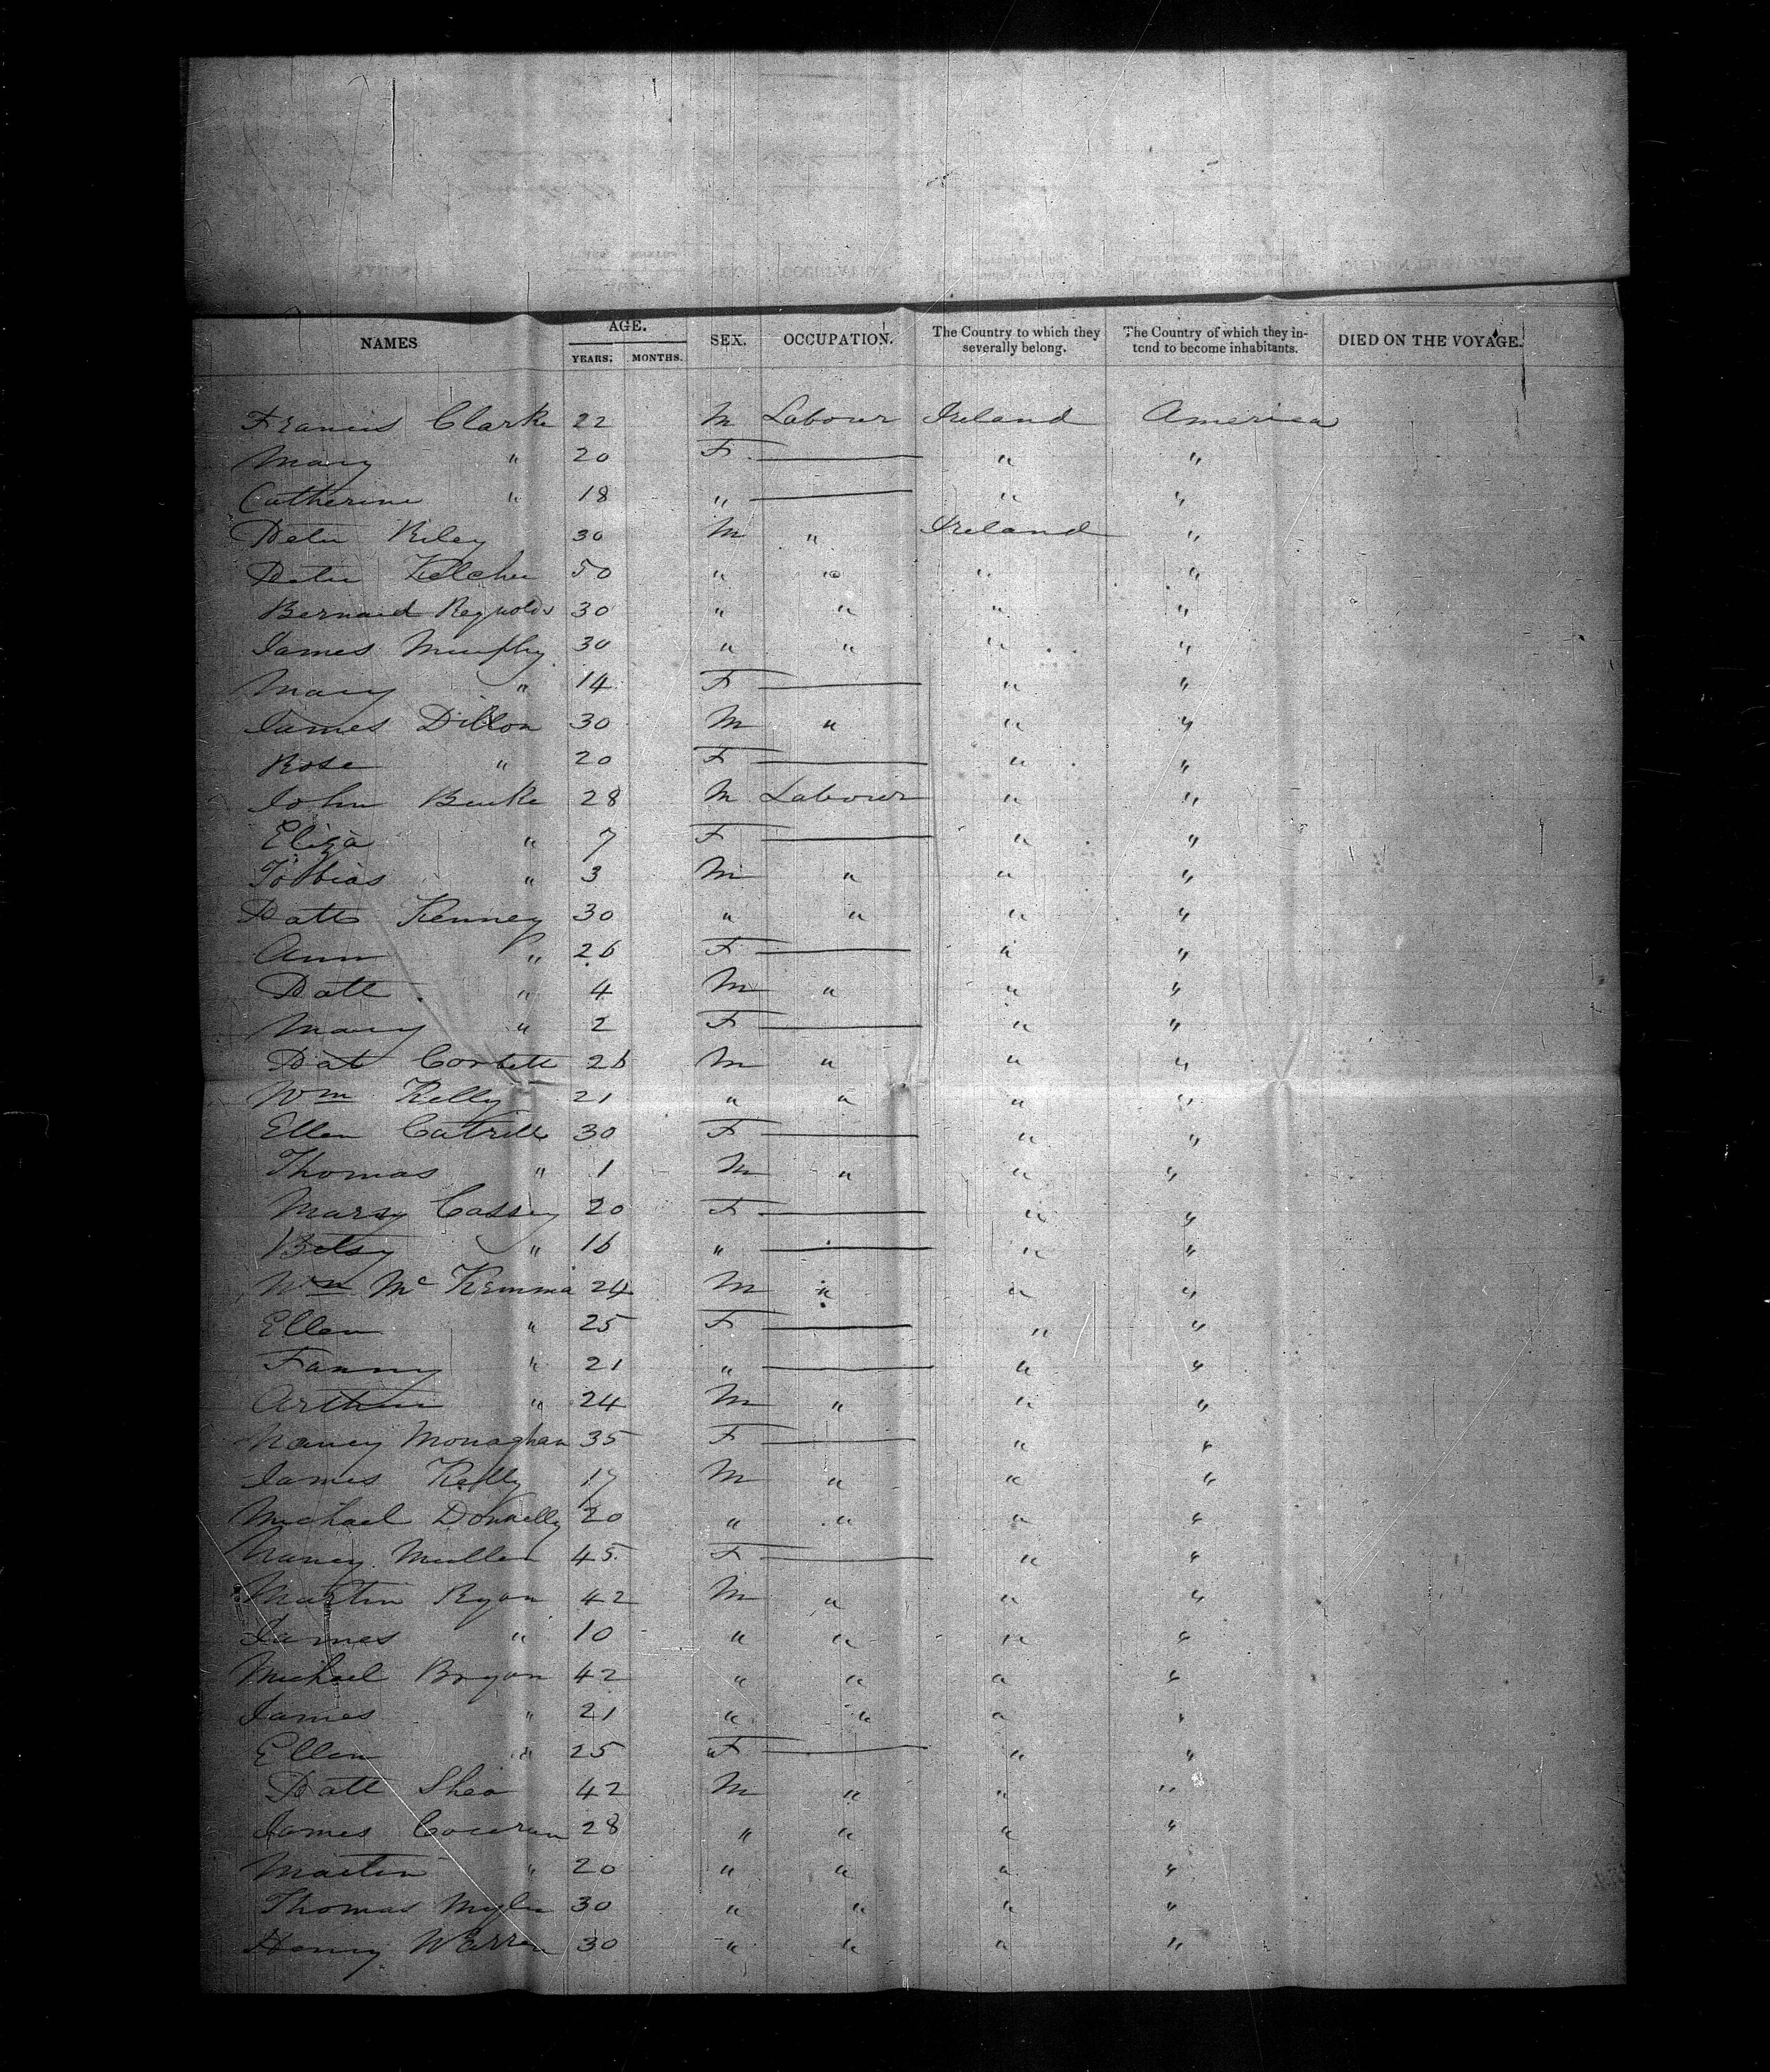 NAMES AGE. YEARS. MONTHS. SEX. OCCUPATION. The Country to which they severally belong. The Country of which they intend to become inhabitants. DIED ON THE VOYAGE.
Francis Clarke 22 M Labour Ireland America
Mary " 20 F — " "
Catherine " 18 " — " "
Peter Riley 30 M " Ireland "
Peter Kelcher 50 " " " "
Bernard Reynolds 30 " " " "
James Murphy 30 " " " "
Mary " 14 F — " "
James Dillon 30 M " " "
Rose " 20 F — " "
John Burke 28 M Labour " "
Eliza " 7 F — " "
Tobbias " 3 M " " "
Patt Kenney 30 " " " "
Ann " 26 F — " "
Patt " 4 M " " "
Mary " 2 F — " "
Pat Corbett 26 M " " "
Wm Kelly 21 " " " "
Ellen 30 F — " "
Thomas " 1 M " " "
Mary Cassey 20 F — " "
Betsy " 16 " — " "
Wm Mc Kemma 24 M " " "
Ellen " 25 F — " "
Fanny " 21 " — " "
Arthur " 24 M " " "
Nancy Monaghan 35 F — " "
James Kelly 17 M " " "
Michael Donnelly 20 " " " "
Nancy Mullen 45 F — " "
Martin Ryan 42 M " " "
James " 10 " " " "
Michael Bryan 42 " " " "
James " 21 " " " "
Ellen " 25 F — " "
Patt Shea 42 M " " "
James Cocoran 28 " " " "
Martin " 20 " " " "
Thomas Myler 30 " " " "
Henry Warren 30 " " " "